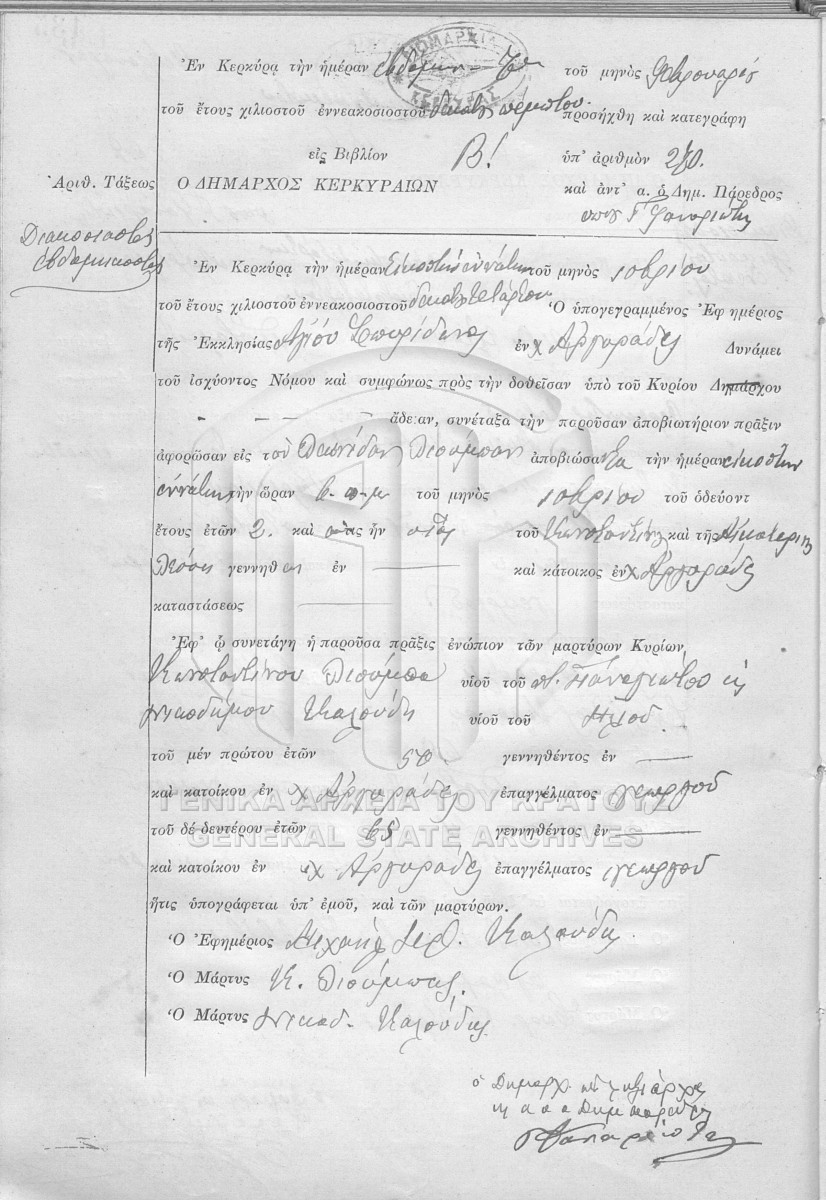 ΔΗΜΑΡΧΕΙΑ ΚΕΡΚΥΡΑΣ
Ἐν Κερκύρᾳ τὴν ἡμέραν ἑβδόμην 7ην τοῦ μηνὸς Φεβρουαρίου
τοῦ ἔτους χιλιοστοῦ ἐννεακοσιοστοῦ δεκάτου πέμπτου προσήχθη καὶ κατεγράφη
εἰς Βιβλίον Β! ὑπ' ἀριθμὸν 270.
Ἀριθ. Τάξεως Ο ΔΗΜΑΡΧΟΣ ΚΕΡΚΥΡΑΙΩΝ καὶ ἀντ' α. ὁ Δημ. Πάρεδρος
Διακοσιοστὸς
ἑβδομηκοστὸς
Ἐν Κερκύρᾳ τὴν ἡμέραν Εἰκοστὴν ἐννάτην τοῦ μηνὸς 10βρίου
τοῦ ἔτους χιλιοστοῦ ἐννεακοσιοστοῦ δεκάτου τετάρτου Ὁ ὑπογεγραμμένος Ἐφημέριος
τῆς Ἐκκλησίας Ἁγίου Σπυρίδωνος ἐν χ Ἀργυράδες Δυνάμει
τοῦ ἰσχύοντος Νόμου καὶ συμφώνως πρὸς τὴν δοθεῖσαν ὑπὸ τοῦ Κυρίου Δημάρχου
ἄδειαν, συνέταξα τὴν παροῦσαν ἀποβιωτήριον πρᾶξιν
ἀφορῶσαν εἰς τὸν ἀποβιώσαντα τὴν ἡμέραν εἰκοστὴν
ἐννάτην τὴν ὥραν 6 π.μ τοῦ μηνὸς 10βρίου τοῦ ὁδεύοντ
ἔτους ἐτῶν 2. καὶ ὅστις ἦν υἱὸς τοῦ Κωνσταντίνου καὶ τῆς Αἰκατερίνης
γεννηθ ἐν καὶ κάτοικος ἐν χ Ἀργυράδες
καταστάσεως
Ἐφ' ᾧ συνετάγη ἡ παροῦσα πρᾶξις ἐνώπιον τῶν μαρτύρων Κυρίων,
Κωνσταντίνου υἱοῦ τοῦ π. Παναγιώτου κ
Νικοδήμου Καλούδη υἱοῦ τοῦ
τοῦ μέν πρώτου ἐτῶν 50 γεννηθέντος ἐν
καὶ κατοίκου ἐν χ Ἀργυράδες ἐπαγγέλματος γεωργοῦ
τοῦ δέ δευτέρου ἐτῶν 65 γεννηθέντος ἐν
καὶ κατοίκου ἐν χ Ἀργυράδες ἐπαγγέλματος γεωργοῦ
ἥτις ὑπογράφεται ὑπ' ἐμοῦ, καὶ τῶν μαρτύρων.
Ὁ Ἐφημέριος Μιχαὴλ Ἱερ. Καλούδης
Ὁ Μάρτυς Κ.
Ὁ Μάρτυς Νικοδ. Καλούδης
ΓΕΝΙΚΑ ΑΡΧΕΙΑ ΤΟΥ ΚΡΑΤΟΥΣ
GENERAL STATE ARCHIVES
ὁ Δήμαρχ. ληξίαρχος